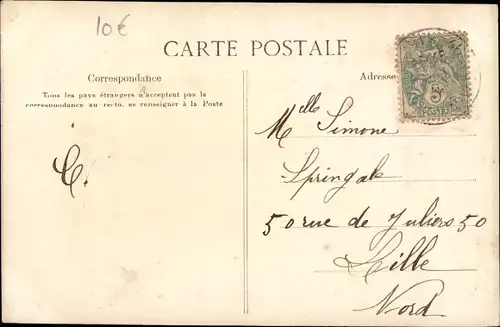 10€
CARTE POSTALE
Correspondance
Tous les pays étrangers n'acceptent pas la
correspondance au recto, se renseigner à la Poste
C.
Adresse
5c
Mlle Simone
Springale
50 rue de Juliers 50
Lille
Nord